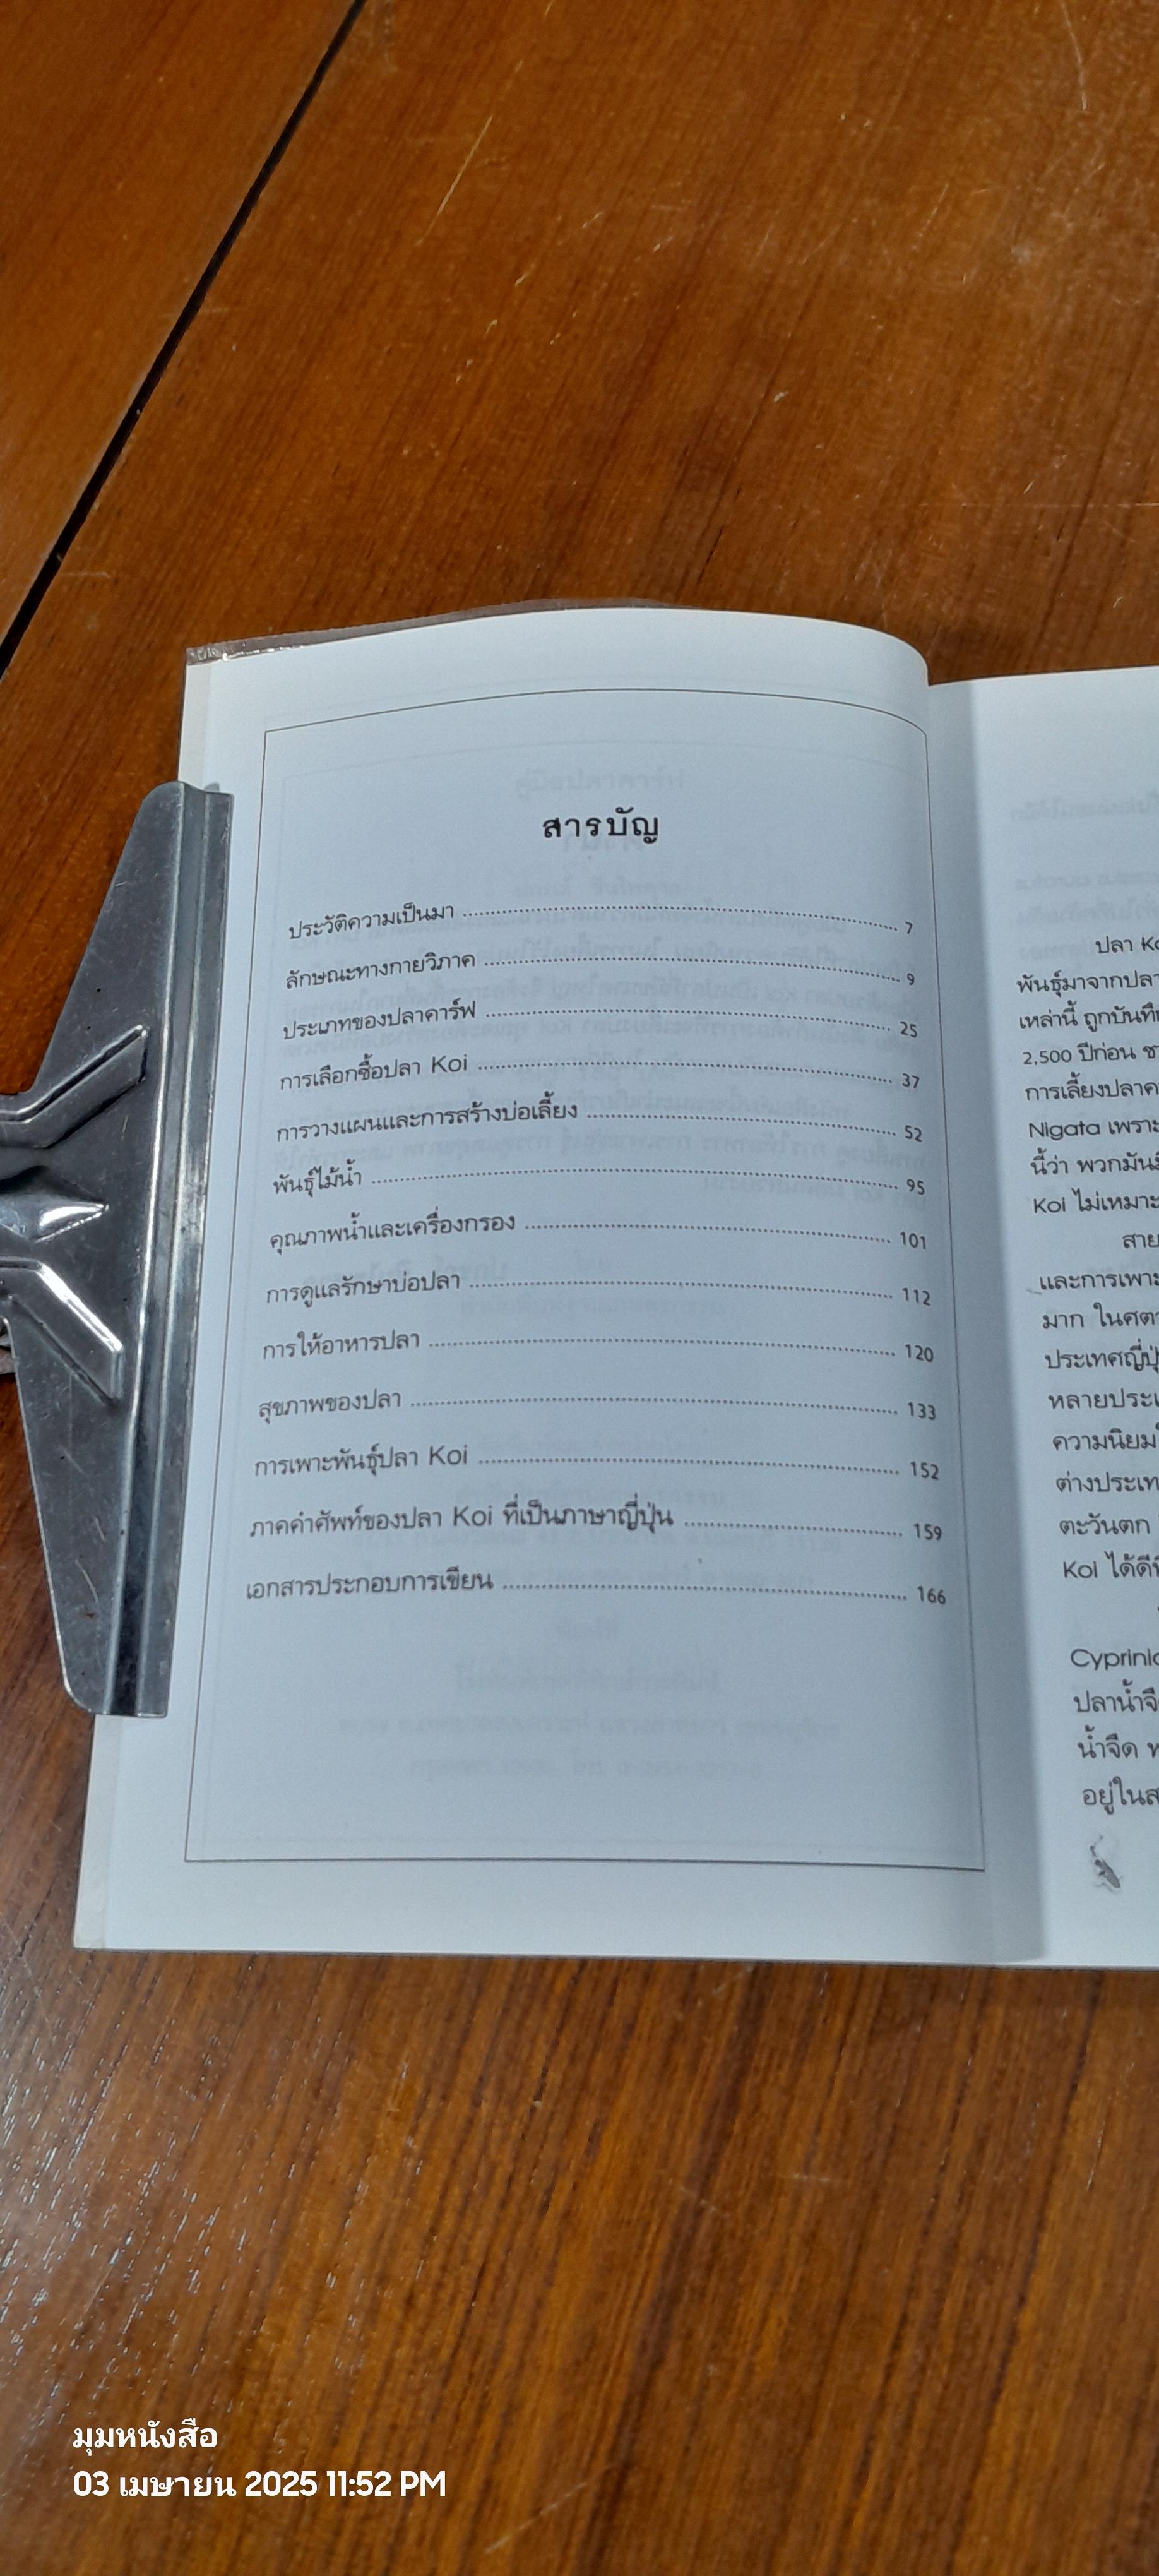 สารบัญ
ประวัติความเป็นมา ........ 7
ลักษณะทางกายวิภาค ........ 9
ประเภทของปลาคาร์ฟ ........ 25
การเลือกซื้อปลา Koi ........ 37
การวางแผนและการสร้างบ่อเลี้ยง ........ 52
พันธุ์ไม้น้ำ ........ 95
คุณภาพน้ำและเครื่องกรอง ........ 101
การดูแลรักษาบ่อปลา ........ 112
การให้อาหารปลา ........ 120
สุขภาพของปลา ........ 133
การเพาะพันธุ์ปลา Koi ........ 152
ภาคคำศัพท์ของปลา Koi ที่เป็นภาษาญี่ปุ่น ........ 159
เอกสารประกอบการเขียน ........ 166
ปลา
พันธุ์มาจากปลา
เหล่านี้ ถูกบันทึ
2,500 ปีก่อน
การเลี้ยงปลา
Nigata เพราะ
นี้ว่า พวกมัน
Koi ไม่เหมาะ
สาย
และการเพาะ
มาก ในศต
ประเทศญี่ปุ่
หลายประเ
ความนิยม
ต่างประเท
ตะวันตก
Koi ได้ดี
Cyprini
ปลาน้ำจื
น้ำจืด
อยู่ใน
มุมหนังสือ
03 เมษายน 2025 11:52 PM